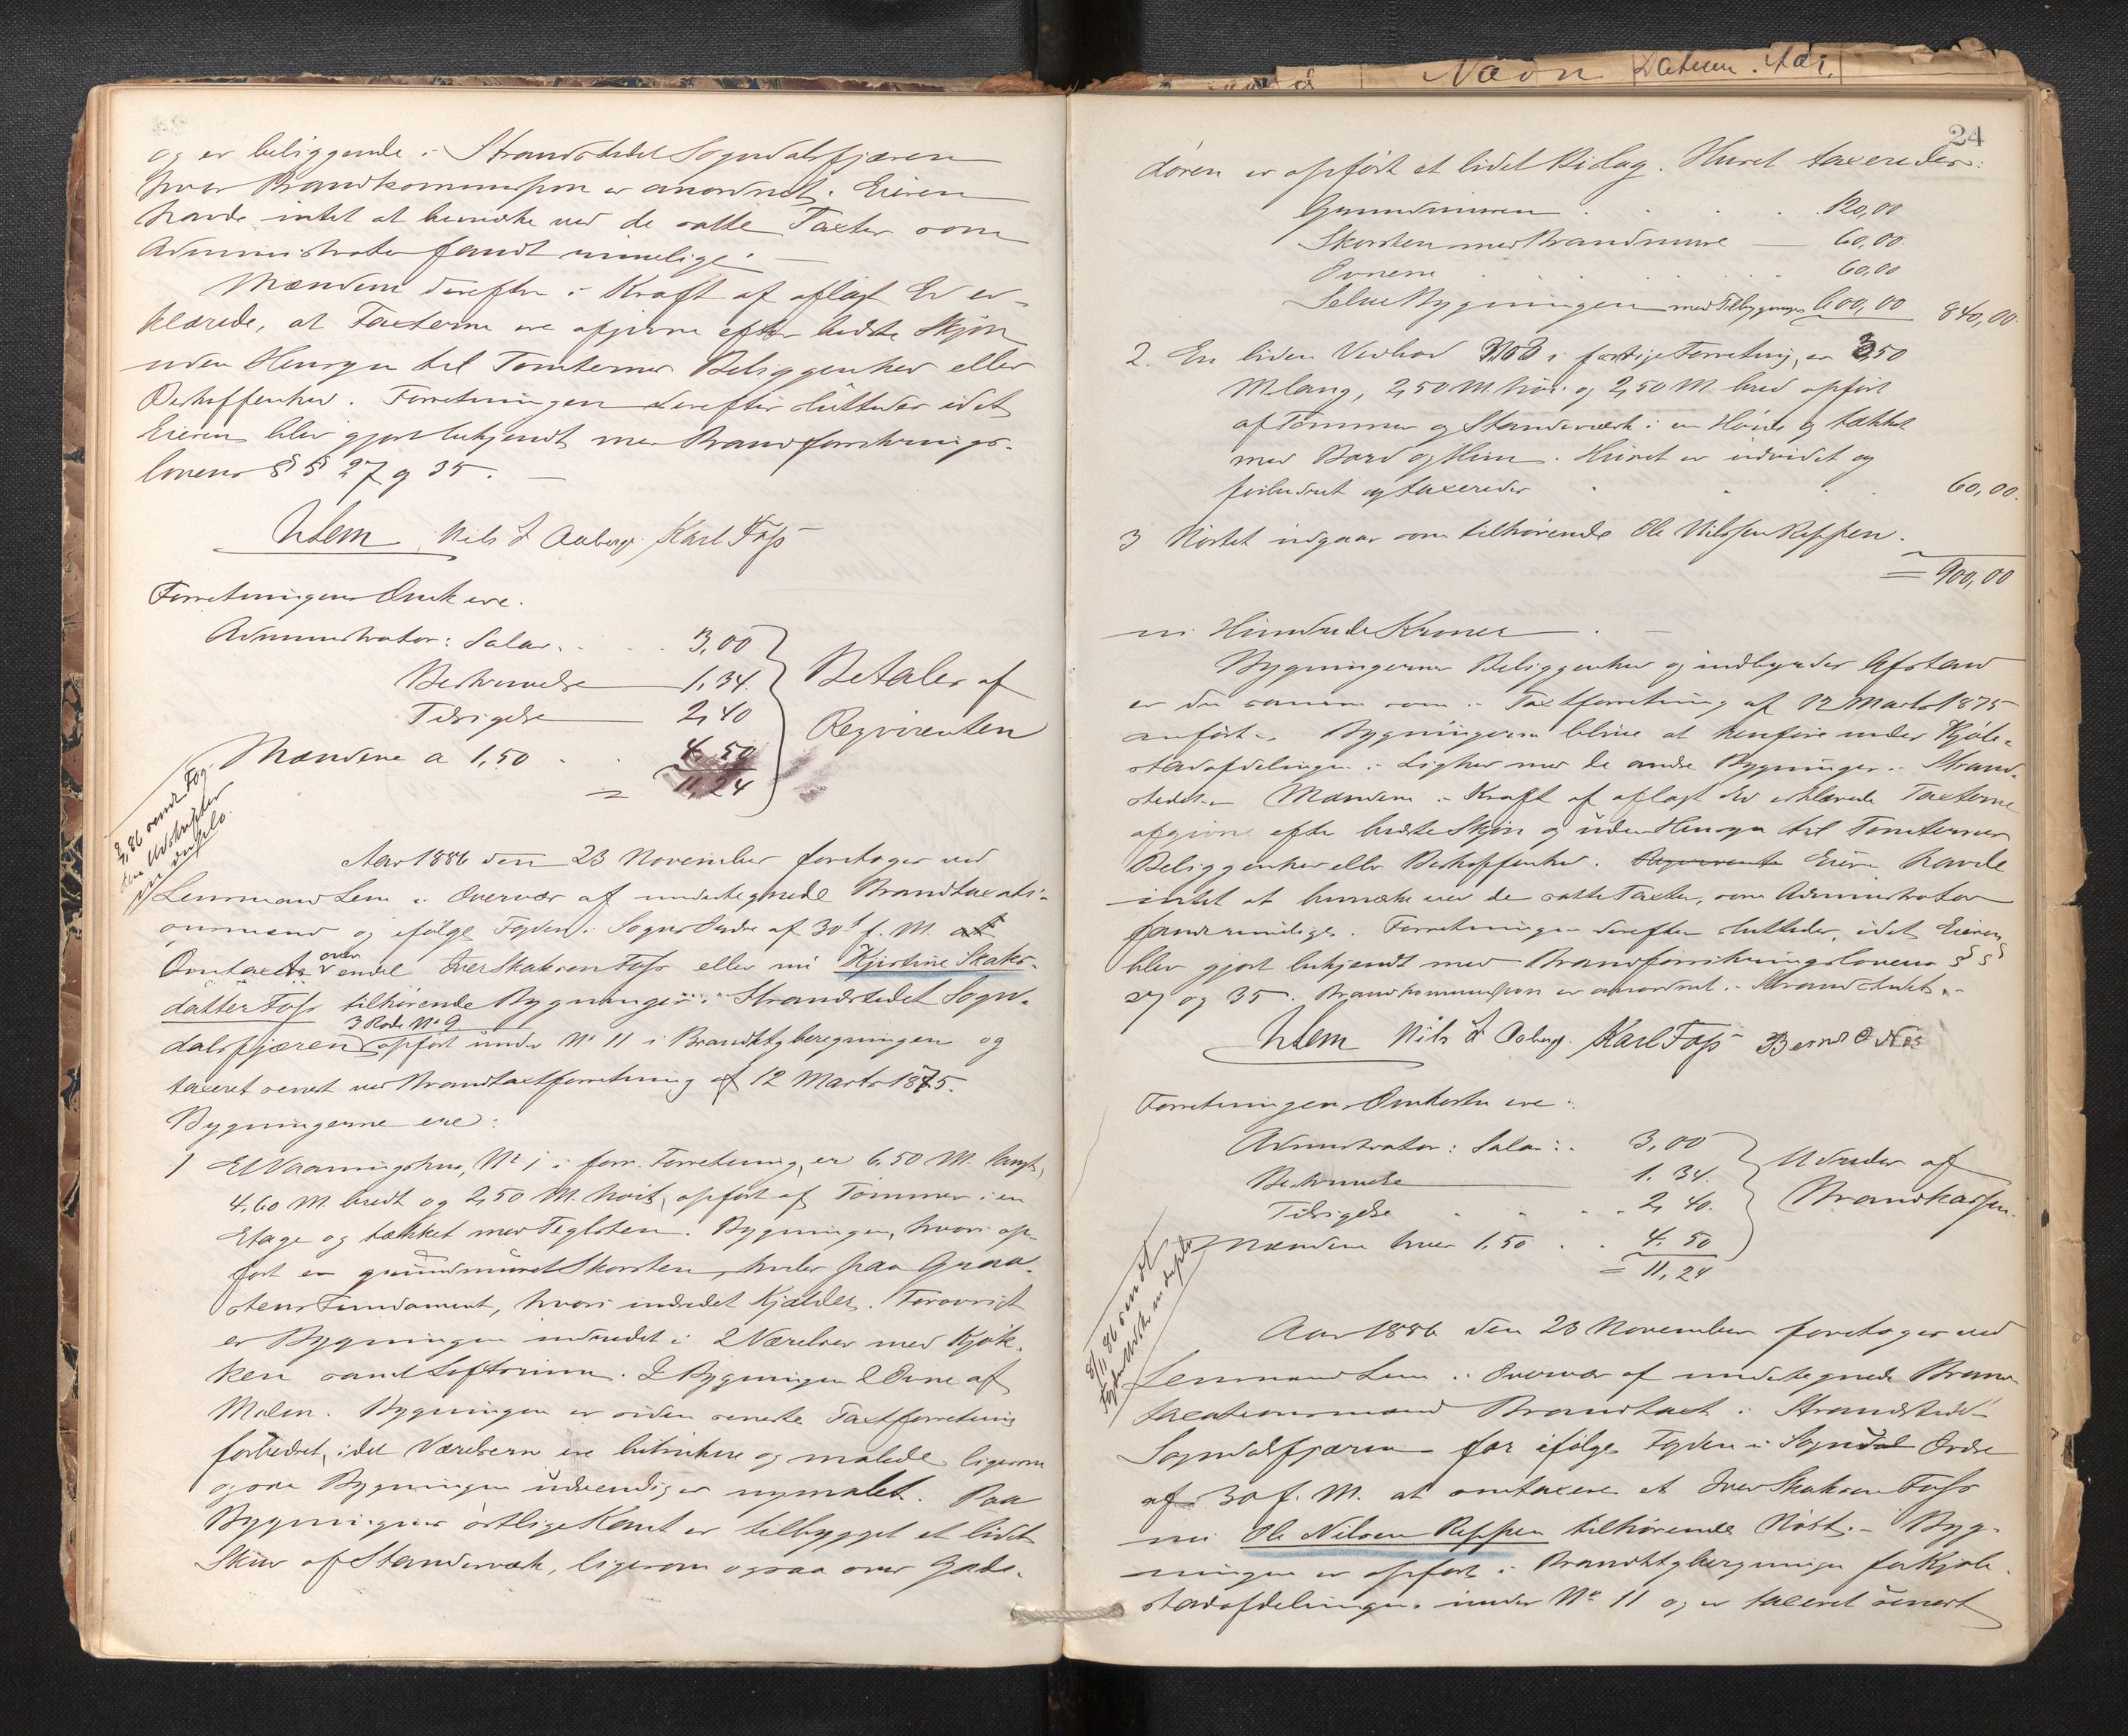 og er beliggende i Strandstedet Sogndalsfjæren
hvor Brandkommission er anordnet. Eieren
havde intet at bemærke ved de satte Taxter som
Administrator fandt rimelige. —
Mændene derefter i Kraft af aflagt Ed er-
klærede, at Taxterne ere afgivne efter bedste Skjøn
uden Hensyn til Tomternes Beliggenhed eller
Beskaffenhed. Forretningen derefter sluttedes idet
Eieren blev gjort bekjendt med Brandforsikrings-
lovens §§ 27 og 35. —
Lem Nils J Aaberge Karl Foss
Forretningens Omk ere.
Administrator: Salar. . . 3,00
Beskrivelse 1,34.
Tilsigelse 2,40
Mændene a 1,50 . . 4,50
= 11,24
Betales af
Reqvirenten
86 sendt Fog.
den Udskrifter
in duplo.
Aar 1886 den 23 November foretoges ved
Lensmand Lem i Overvær af undertegnede Brandtaxati-
onsmænd og ifølge Fogden i Sogns Ordre af 30te f. M.
Omtaxt over endel Iver Skaksen Foss eller nu Kjirstine Skaks-
datter Foss tilhørende Bygninger i Strandstedet Sogn-
dalsfjæren 3 Rode No 9 opført under No 11 i Brandtbygberegningen og
taxeret senest ved Brandtaxtforretning af 12 Marts 1875.
Bygningerne ere:
1 Et Vaaningshus, No 1 i forr. Forretning, er 6,50 M. langt,
4,60 M. bredt og 2,50 M. høit, opført af Tømmer i en
Etage og tækket med Teglsten. Bygningen, hvori op-
ført en grundmuret Skorsten, hviler paa Graa-
stens Fundament, hvori indredet Kjælder. Forøvrigt
er Bygningen indredet i 2 Værelser med Kjøk-
ken samt Loftsrum. I Bygningen 2 Ovne af
Malm. Bygningen er siden seneste Taxtforretning
forbedret, idet Værelserne ere betrukne og malede ligesom
ogsaa Bygningen udvendig er nymalet. Paa
Bygningens østlige Kant er tilbygget et lidet
Skur af Standerværk, ligesom ogsaa over Gade-
Navn Datum. Aar.
24
døren er opført et lidet Bislag. Huset taxeredes:
Grundmuren . . . . 120,00
Skorsten med Brandmure — 60,00.
Ovnene . . . . . . 60,00
Selve Bygningen med Tilbygninger 600,00 840,00.
2. En liden Vedbod i forrige Forretning, er 3,50
M lang, 2,50 M høi og 2,50 M. bred opført
af Tømmer og Standerværk i en Høide og tækket
med Bord og Hun. Huset er udvidet og
forbedret og taxeredes . . . 60,00.
3 Nøstet udgaar som tilhørende Ole Nilssen Reppen.
= 900,00
ni Hundrede Kroner — . —
Bygningernes Beliggenhed og indbyrdes Afstand
er den samme som i Taxtforretning af 12 Marts 1875
anført. Bygningerne blive at henføre under Kjøb-
stadafdelingen i Lighed med de andre Bygninger i Strand-
stedet. Mændene i Kraft af aflagt Ed erklærede Taxterne
afgivne efter bedste Skjøn og uden Hensyn til Tomternes
Beliggenhed eller Beskaffenhed. Reqvirente Eieren havde
intet at bemærke ved de satte Taxter, som Administrator
fandt rimelige. Forretningen derefter sluttedes, idet Eieren
blev gjort bekjendt med Brandforsikringslovens §§
27 og 35. Brandkommission er anordnet i Strandstedet. —
Lem Nils J Aaberge Karl Foss Bernt O Næs
Forretningens Omkostn ere:
Administrator: Salar: . 3,00
Beskrivelse 1.34.
Tilsigelse . . . . 2,40.
Mændene hver 1,50 . . 4.50
= 11,24
Udredes af
Brandkassen.
86 sendt
Fogden Udskr in duplo
Aar 1886 den 23 November foretoges ved
Lensmand Lem i Overvær af undertegnede Brand-
taxationsmænd Brandtaxt i Strandstedet
Sogndalsfjæren for ifølge Fogden i Sogndal Ordre
af 30 f. M. at omtaxere et Iver Skaksen Foss
nu Ole Nilsen Reppen tilhørende Nøst. — Byg-
ningen er opført i Brandtbygberegningen for Kjøb-
stadafdelingen under No 11 og er taxeret senest